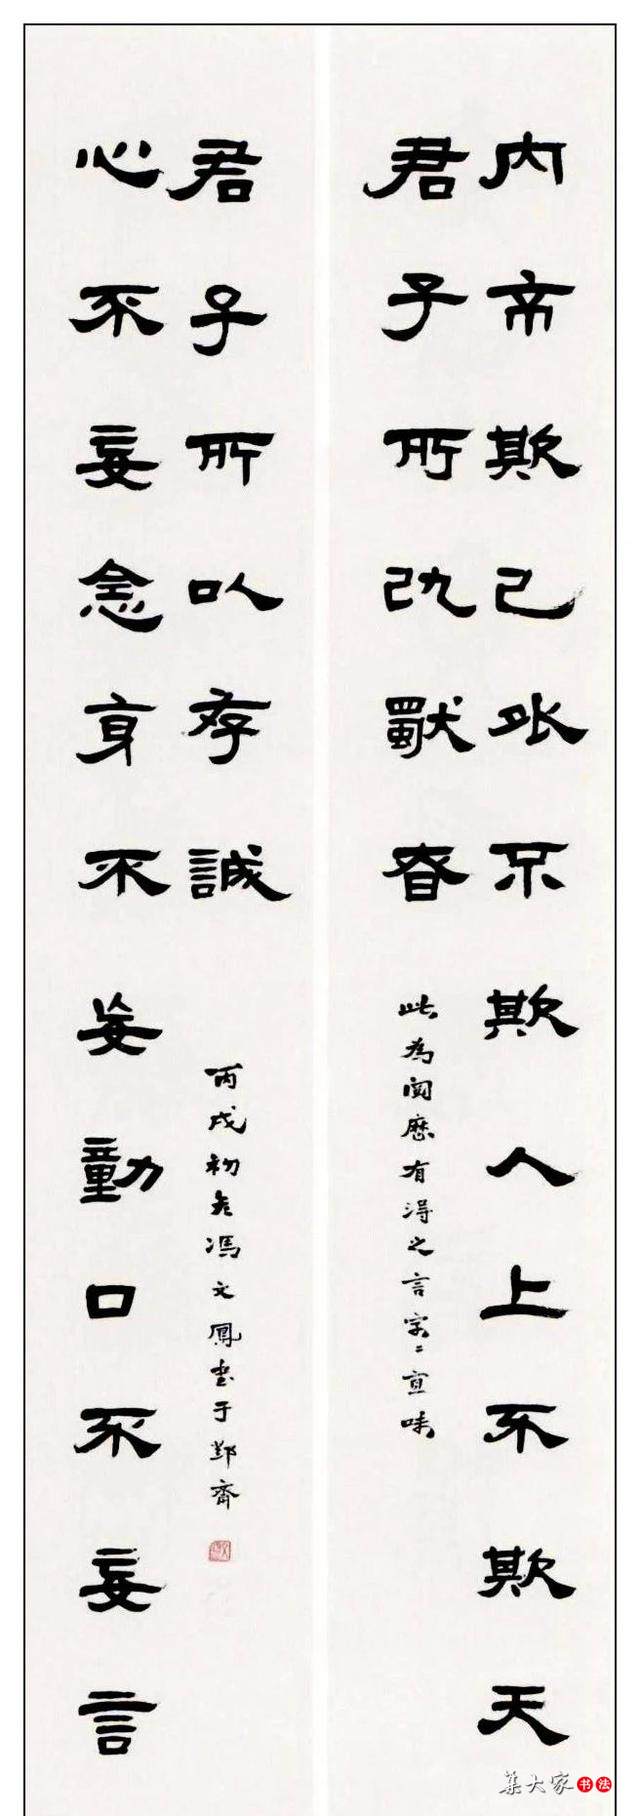 内不欺己外不欺人上不欺天
君子所以獨昚
此為閱歷有得之言字〻宜味
心不妄念身不妄動口不妄言
君子所以存誠
丙戌初冬馮文鳳書于齋
集大家书法